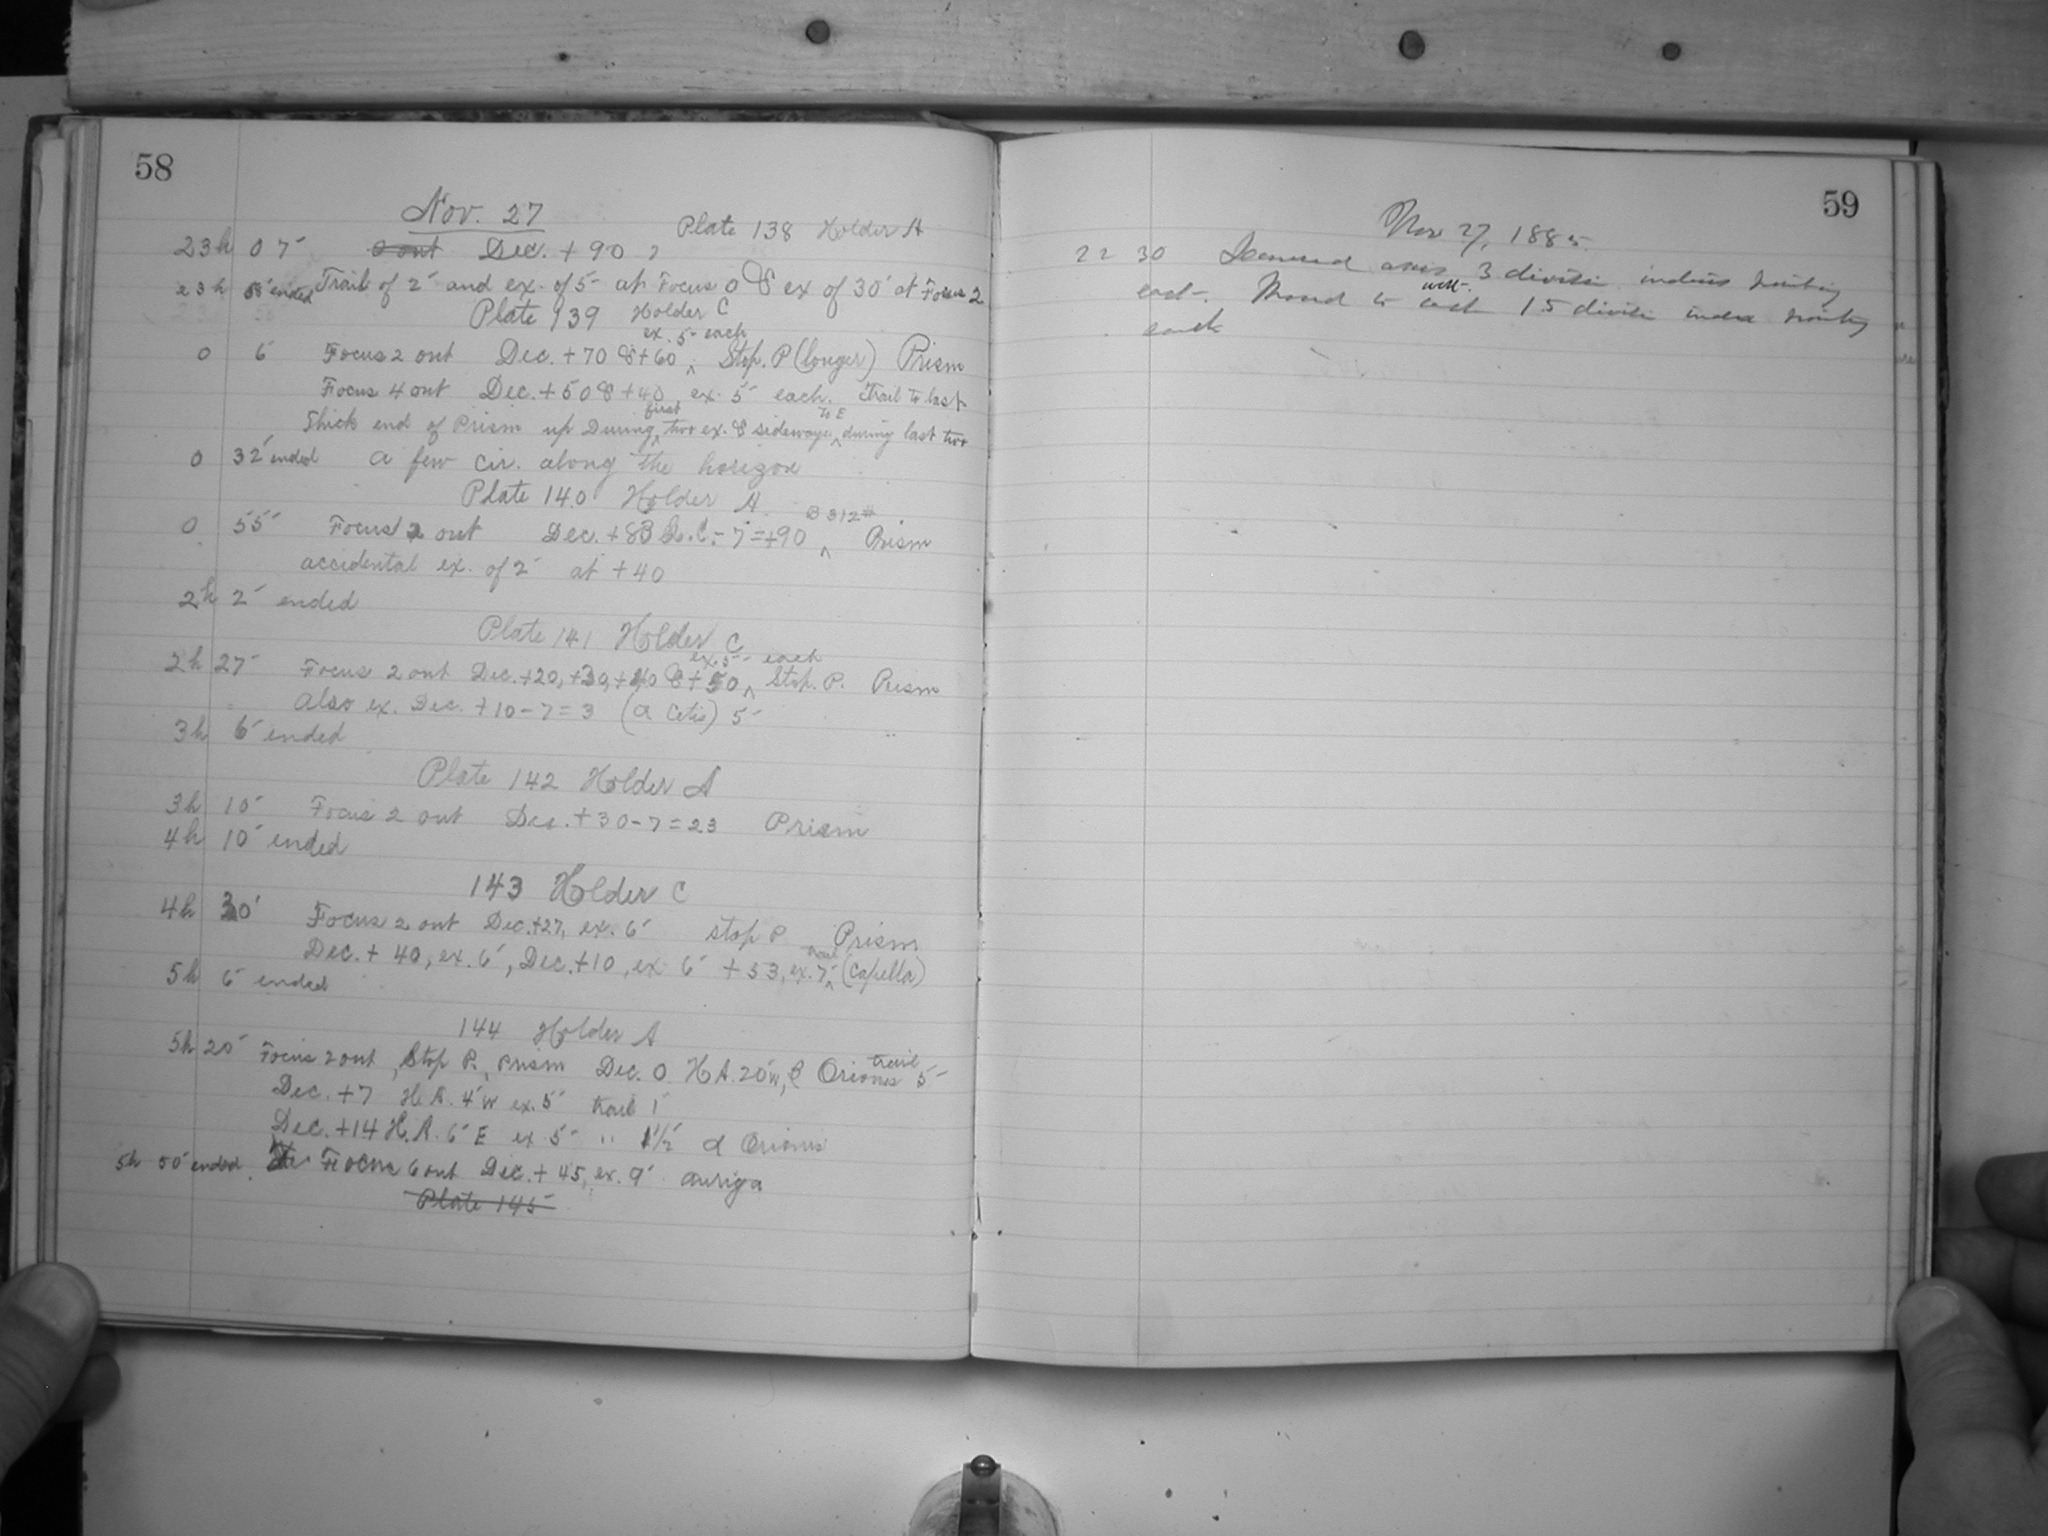 58
Nov. 27
Plate 138 Holder A
23h 07' 2 out Dec. +90
23h 58' ended Trail of 2' and ex. of 5' at Focus 0 & ex of 30' at Focus 2
Plate 139 Holder C
ex. 5' each
0 6' Focus 2 out Dec. +70 & +60 ^ Stop. P (longer) Prism
Focus 4 out Dec. +50 & +40, ex. 5' each. Trail to last
first To E
Thick end of Prism up During ^ two ex. & sideways ^ during last two
0 32' ended a few cir. along the horizon
Plate 140 Holder A.
B 312#
0 55' Focus 2 out Dec. +83 R.C. - 7 = +90 ^ Prism
accidental ex. of 2' at +40
2h 2' ended
Plate 141 Holder C
ex. 5' each
2h 27' Focus 2 out Dec. +20, +30, +40 & +50 ^ Stop. P. Prism
Also ex. Dec. +10 - 7 = 3 (α Cetis) 5'
3h 6' ended
Plate 142 Holder A
3h 10' Focus 2 out Dec. +30 - 7 = 23 Prism
4h 10' ended
143 Holder C
4h 30' Focus 2 out Dec. +27, ex. 6' stop P Prism
trail
Dec. + 40, ex. 6', Dec. +10, ex 6' + 53, ex. 7' ^ (Capella)
5h 6' ended
144 Holder A
trail
5h 20' Focus 2 out, Stop P., Prism Dec. 0 H A. 20' W, Orionis 5'
Dec. +7 H. A. 4' W ex. 5' trail 1'
Dec. +14 H. A. 6' E ex 5' " 1½' α Orionis
5h 50' ended Focus 6 out Dec. + 45, ex. 9' auriga
Plate 145
59
Nov 27, 1885.
22 30 axis 3 divisions
west
east. Moved to ^ 15 divisions index
south